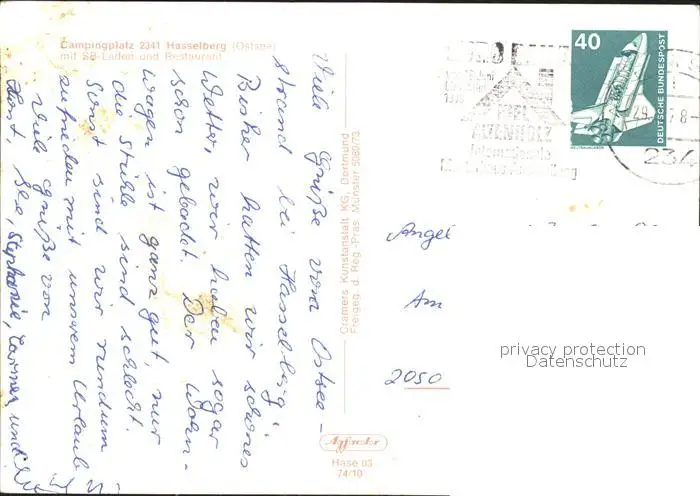 Campingplatz 2341 Hasselberg (Ostsee)
mit SB-Laden und Restaurant
Viele Grüße vom Ostsee-
strand bei Hasselberg!
Bisher hatten wir schönes
Wetter, wir haben sogar
schon gebadet. Der Wohn-
wagen ist ganz gut, nur
die Stühle sind schlecht.
Sonst sind wir rundum
zufrieden mit unserem Urlaub
Viele Grüße von
Horst, Ilse, Stephanie, Carmen und
Cramers Kunstanstalt KG, Dortmund
Freigeg. d. Reg.-Präs. Münster 5080/73
Hase 03
74/10
40
DEUTSCHE BUNDESPOST
ALTENHOLZ
234
Angel
Am
2050
privacy protection
Datenschutz